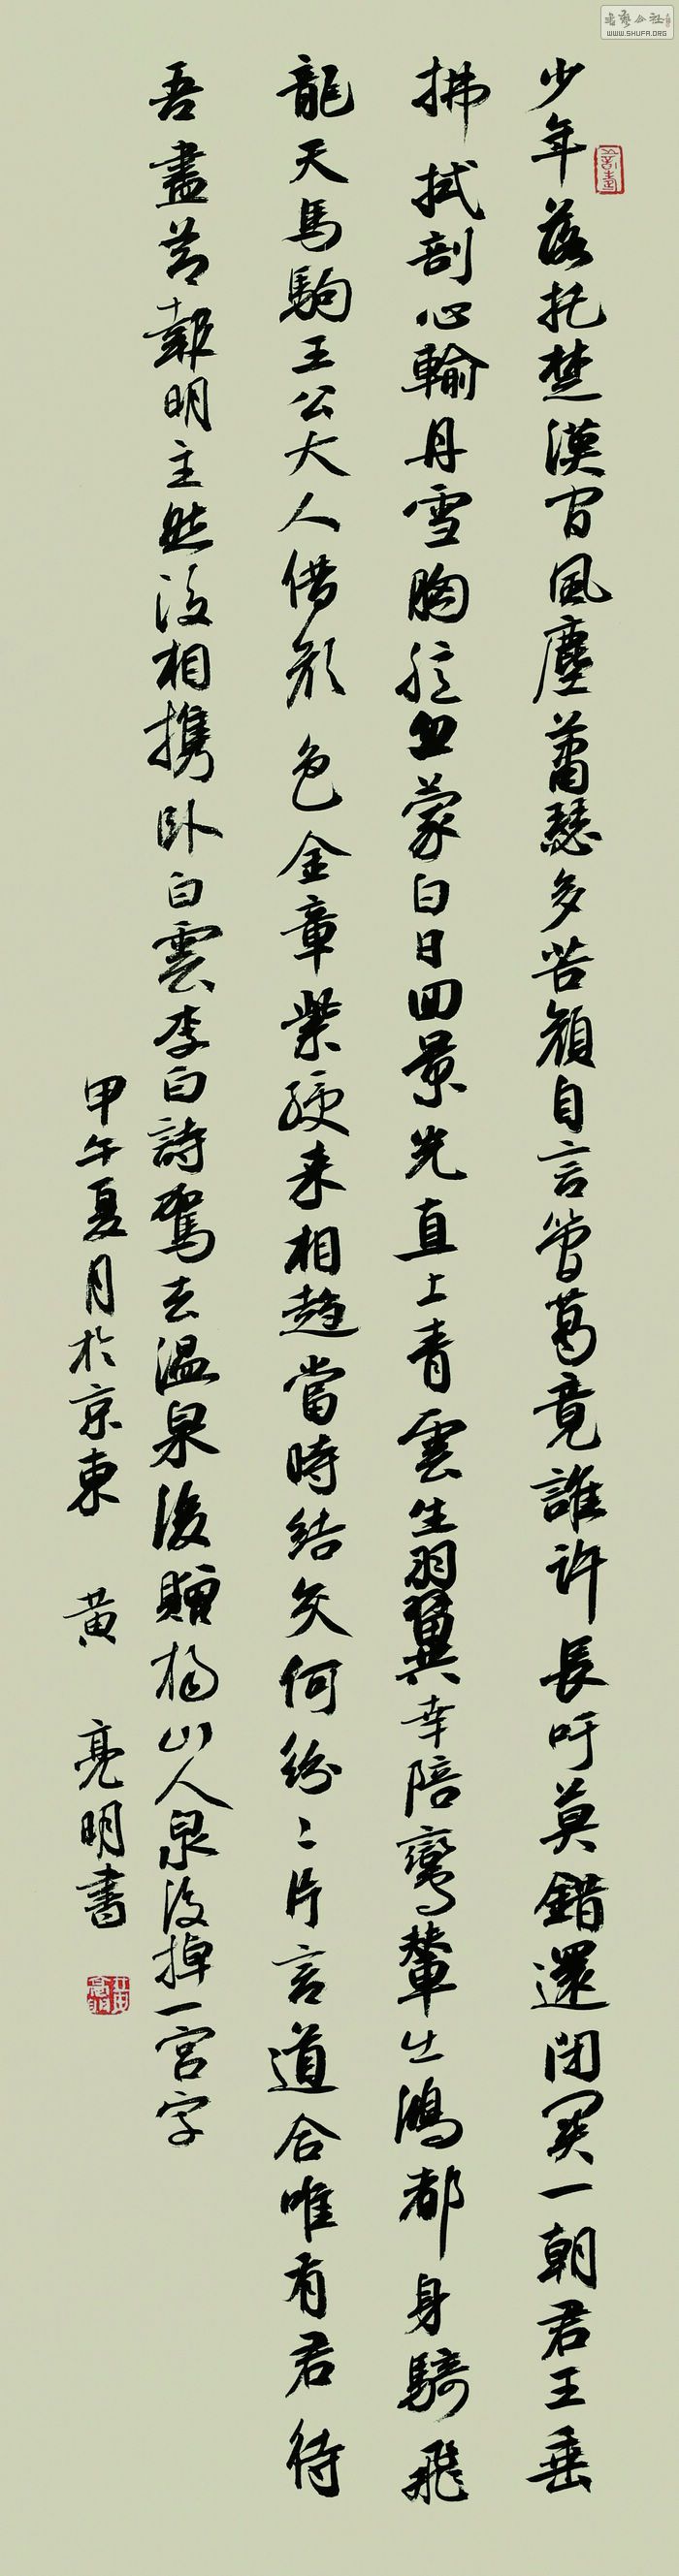 少年落托楚漢間風塵蕭瑟多苦顏自言管葛竟誰許長吁莫錯還閉關一朝君王垂
拂拭剖心輸丹雪胸臆忽蒙白日回景光直上青雲生羽翼幸陪鸞輦出鴻都身騎飛
龍天馬駒王公大人借顏色金章紫綬来相趨當時結交何紛〻片言道合唯有君待
吾盡節報明主然後相携卧白雲李白詩駕去温泉後贈楊山人泉後掉一宮字
甲午夏月於京東 黄亮明書
WWW.SHUFA.ORG